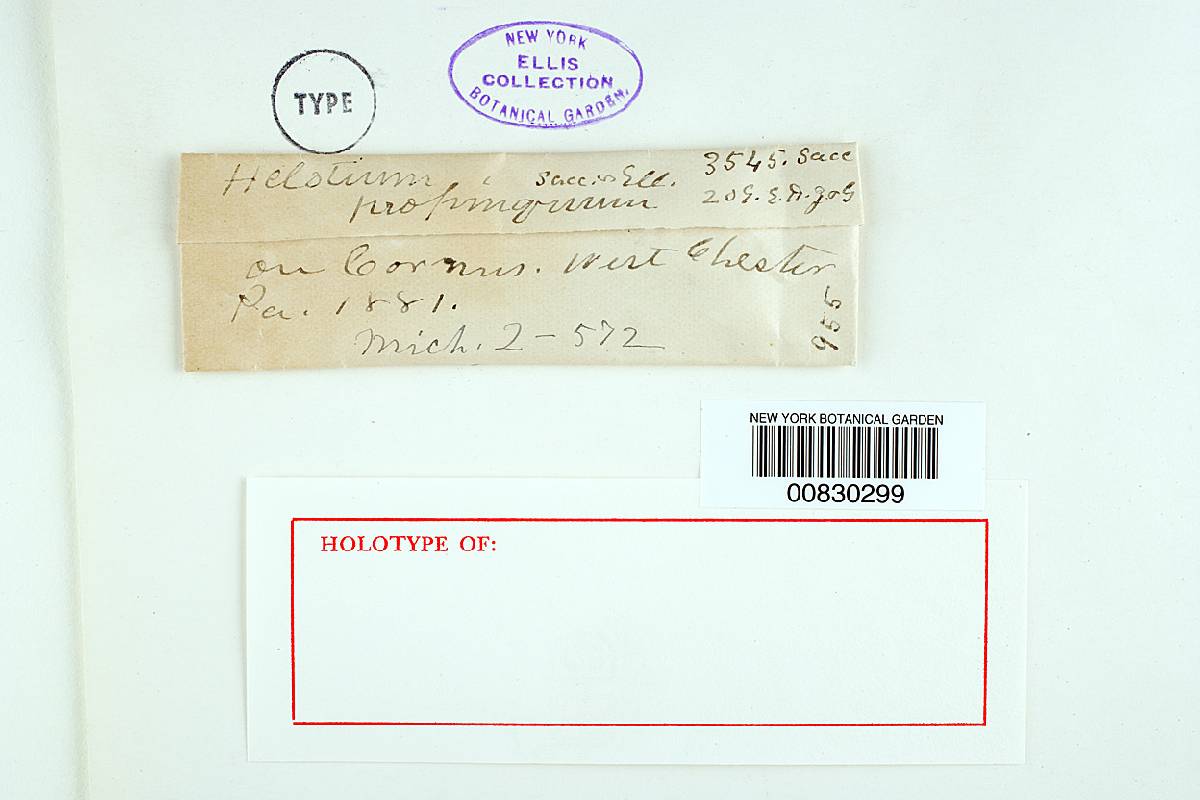 TYPE
NEW YORK
ELLIS
COLLECTION
BOTANICAL GARDEN.
Helotium Sacc. & Ell. 3545. Sacc
propinquum
on Cornus. West Chester
Pa. 1881.
Mich. 2-572
955
NEW YORK BOTANICAL GARDEN
00830299
HOLOTYPE OF: